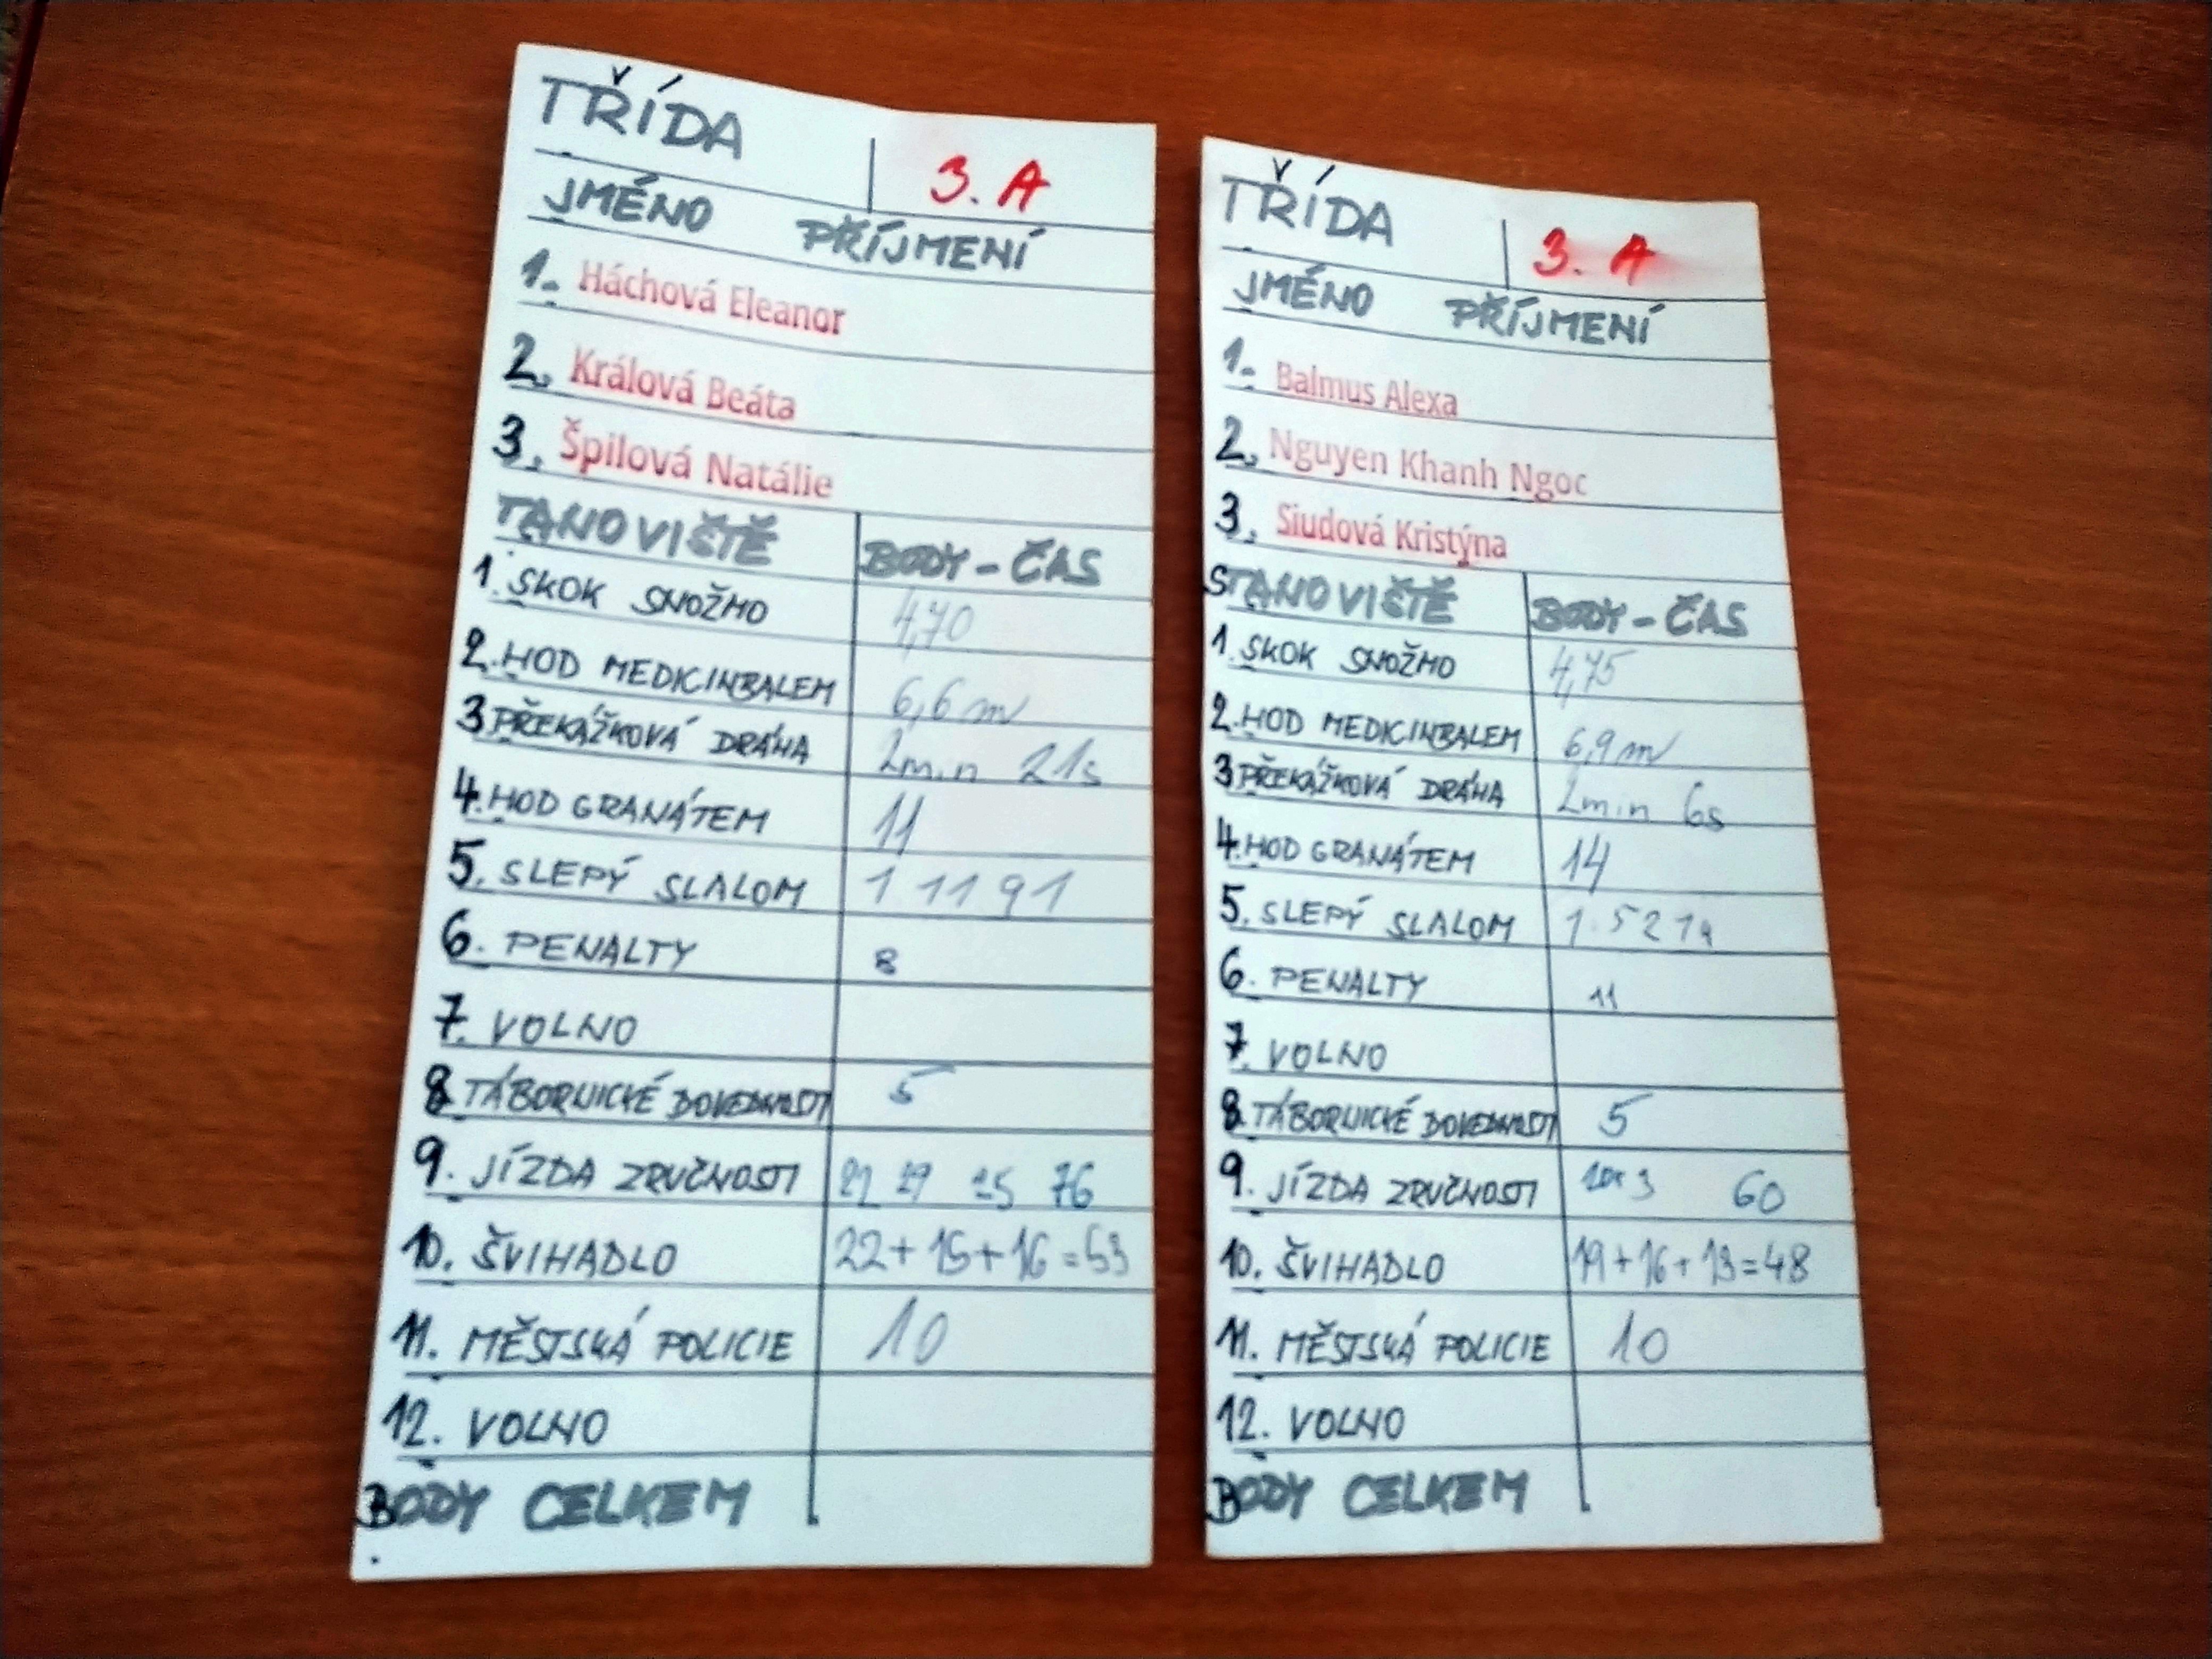 TŘÍDA 3. A
JMÉNO PŘÍJMENÍ
1. Háchová Eleanor
2. Králová Beáta
3. Špilová Natálie
TANOVIŠTĚ BODY - ČAS
1. SKOK SNOŽMO 4,70
2. HOD MEDICINBALEM 6,6 m
3 PŘEKÁŽKOVÁ DRÁHA 2min 21s
4. HOD GRANÁTEM 11
5. SLEPÝ SLALOM 1 11 91
6. PENALTY 8
7. VOLNO
8 TÁBORNICKÉ DOVEDNOSTI 5
9. JÍZDA ZRUČNOSTI 25 76
10. ŠVIHADLO 22+15+16=53
11. MĚSTSKÁ POLICIE 10
12. VOLNO
BODY CELKEM
TŘÍDA 3. A
JMÉNO PŘÍJMENÍ
1. Balmus Alexa
2. Nguyen Khanh Ngoc
3. Siudová Kristýna
STANOVIŠTĚ BODY - ČAS
1. SKOK SNOŽMO 4,75
2. HOD MEDICINBALEM 6,9 m
3 PŘEKÁŽKOVÁ DRÁHA 2min 6s
4. HOD GRANÁTEM 14
5. SLEPÝ SLALOM
6. PENALTY 11
7. VOLNO
8. TÁBORNICKÉ DOVEDNOSTI 5
9. JÍZDA ZRUČNOSTI 60
10. ŠVIHADLO 19+16+13=48
11. MĚSTSKÁ POLICIE 10
12. VOLNO
BODY CELKEM